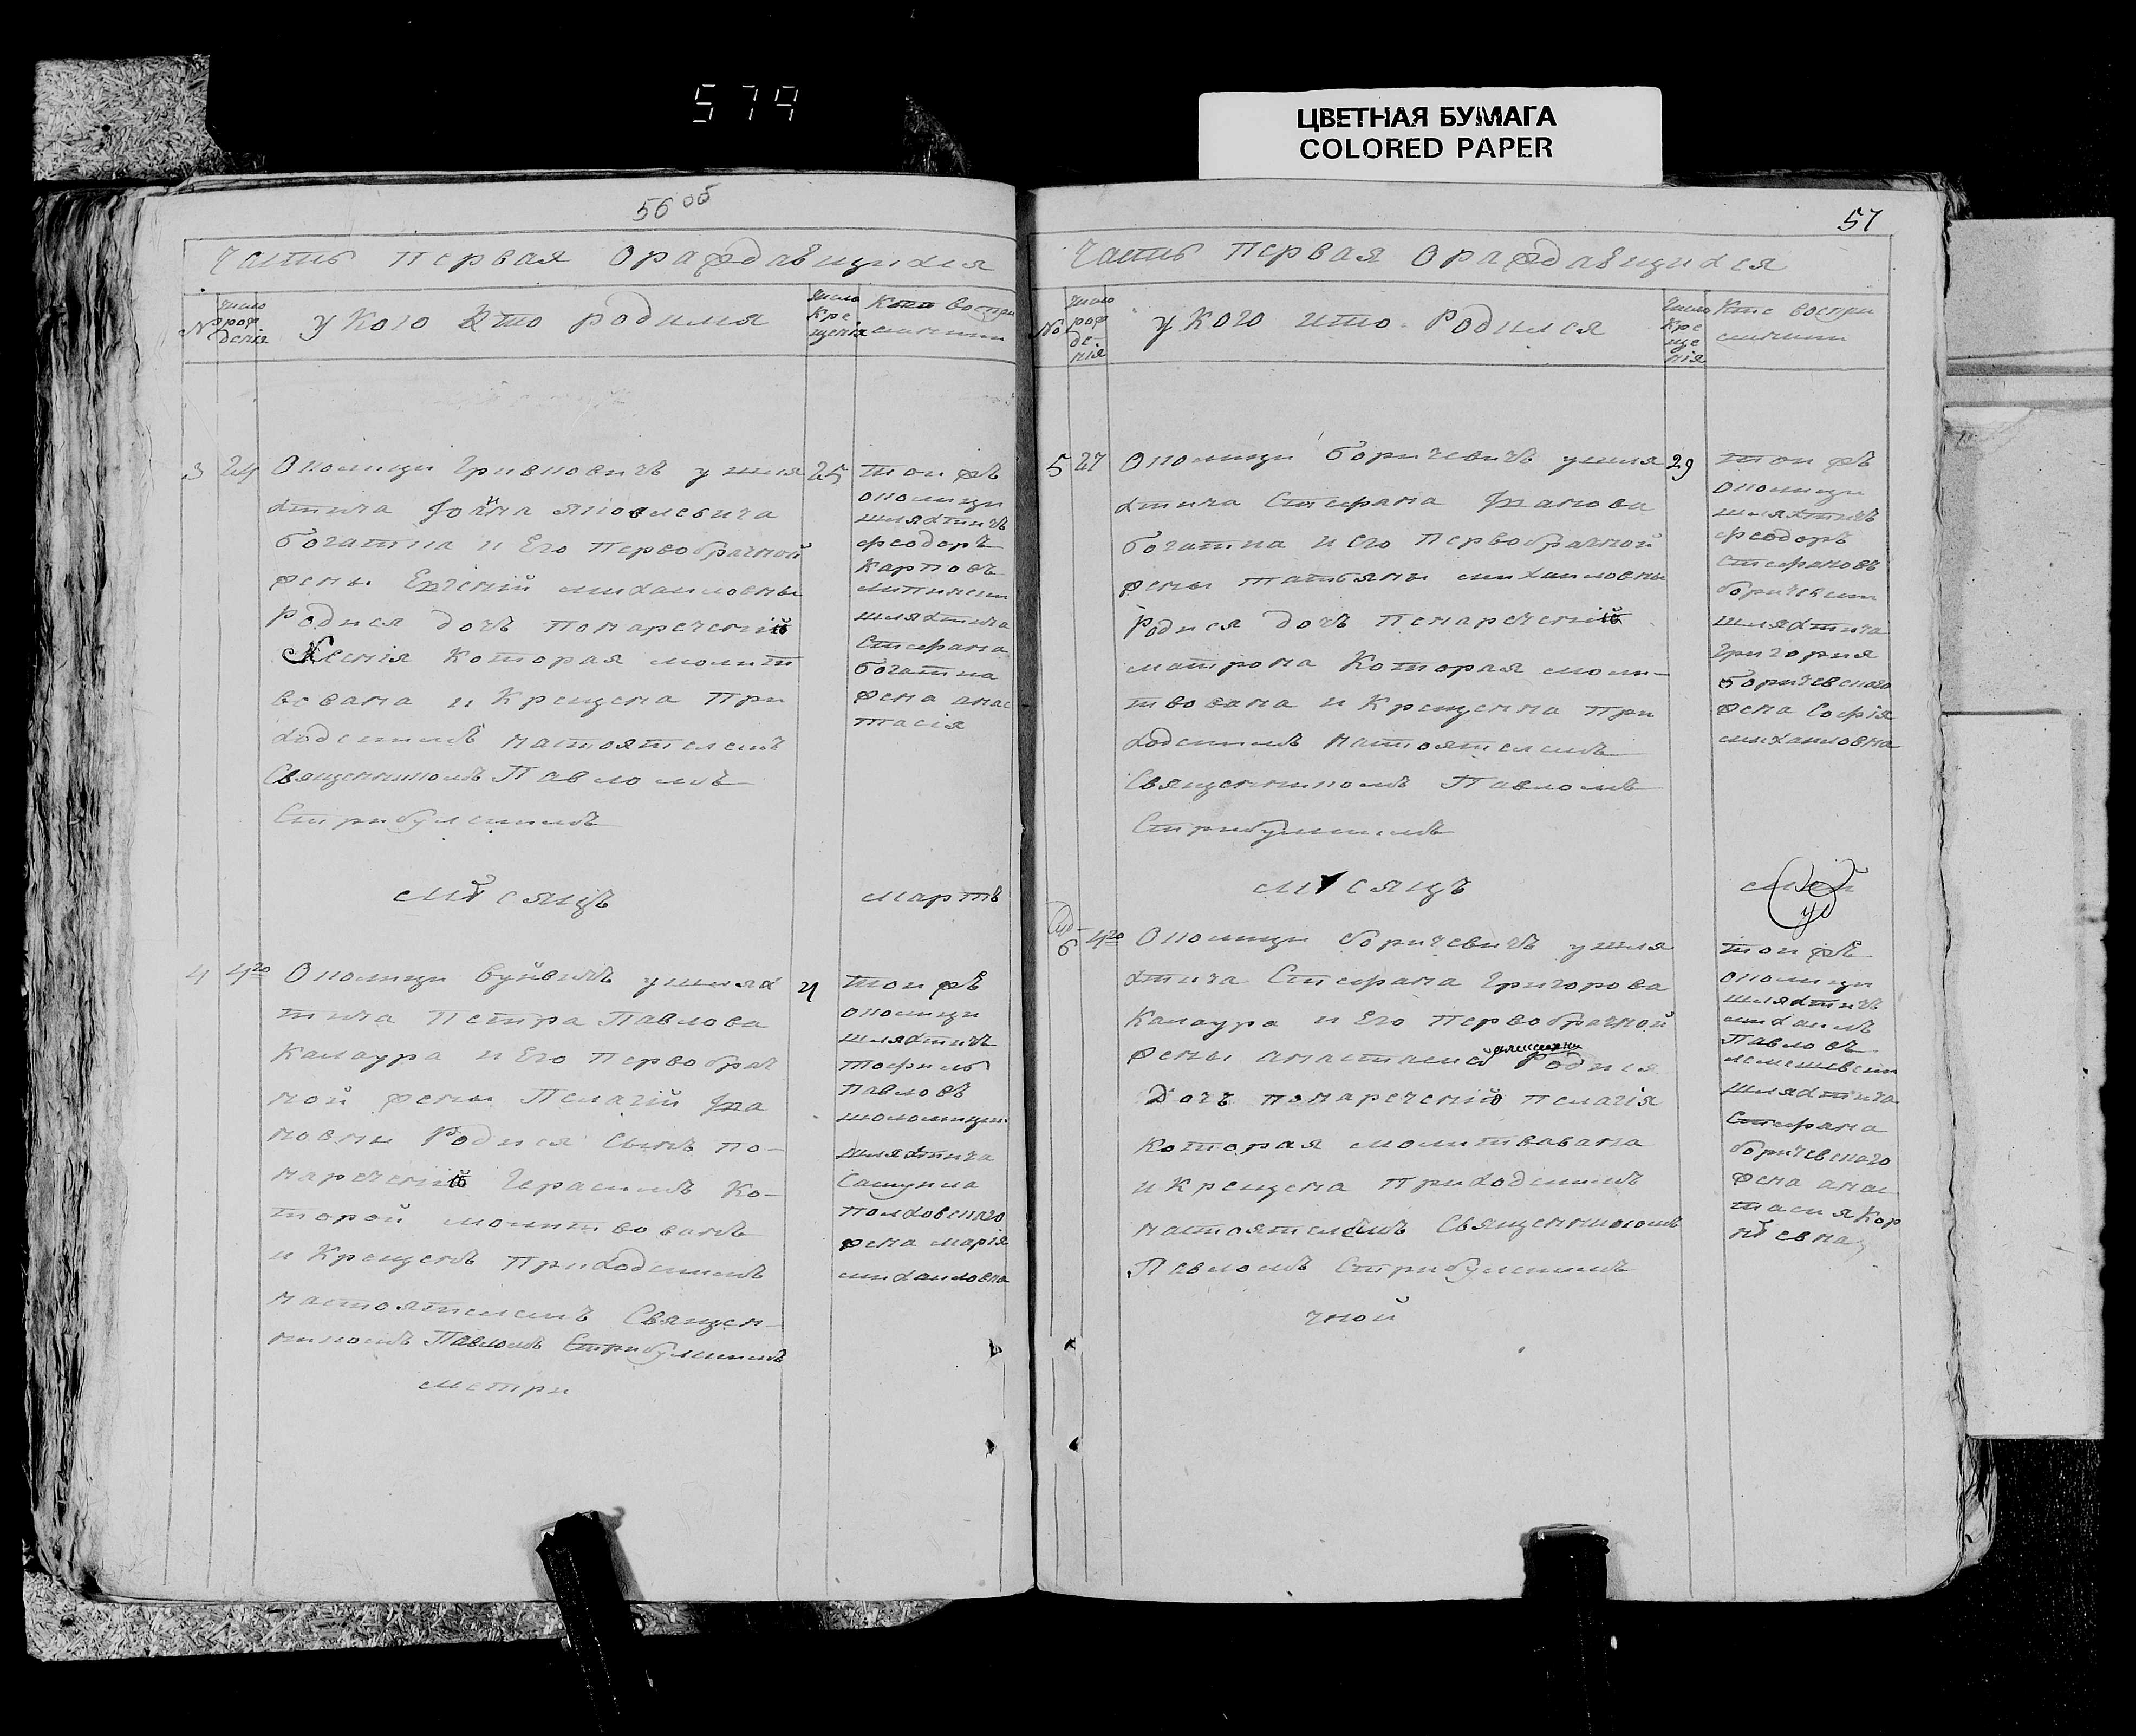 579
ЦВЕТНАЯ БУМАГА
COLORED PAPER
56 об
Часть первая ораждавшихся
№
число рож дения
у кого кто родился
число кре щенiя
Кто воспри емники
3 24 25
Околицы Гривковичъ у шля
хтича
Богатка и Его первобрачной
жены михаиловны
Родися дочъ нонареченiй
Ксенiя которая молит
вована и Крещена при
ходскимъ настоятелемъ
Священникомъ Павломъ
Стрибульскимъ
той жъ
околицы
шляхтичъ
феодоръ
Карповъ
шляхтича
Стефана
Богатка
жена анас
тасiя
мѣсяцъ мартъ
4 4го
Околицы Буйвичъ у шлях
тича Петра Павлова
Калаура и Его первобрач
ной жены Пелагiй
новны Родися сынъ но-
нареченiй Герасимъ ко-
торой молитвованъ
и Крещенъ Приходскимъ
настоятелемъ Священ-
никомъ Павломъ Стрибульскимъ
метри
той жѣ
околицы
шляхтичъ
Павловъ
шляхтича
жена марiя
михаиловна
57
Часть первая ораждавшихся
№
число рож де- нiя
у кого кто родился
число кре ще нiя
Кто воспри емники
5 27 29
Околицы Боричевичъ у шля
хтича Стефана
Богатка и его первобрачной
жены татьяны михаиловны
Родися дочъ нонареченiй
матрона Которая моли-
твована и Крещенна при
ходскимъ настоятелемъ
Священникомъ Павломъ
Стрибульскимъ
той жъ
околицы
шляхтичъ
феодоръ
Стефановъ
шляхтича
Григорiя
Боричевского
жена Софiя
михаиловна
мѣсяцъ май
6 4го
Околицы Боричевичъ у шля
хтича Стефана Григорова
Калаура и Его первобрачной
жены анастасiи Родися
Дочъ нонареченiй пелагiя
которая молитвавана
и Крещена Приходскимъ
настоятелемъ Священникомъ
Павломъ Стрибульскимъ
чной
той жѣ
околицы
шляхтичъ
михаилъ
Павловъ
шляхтича
Стефана
боричевского
жена анас
тасия Кор
нѣевна